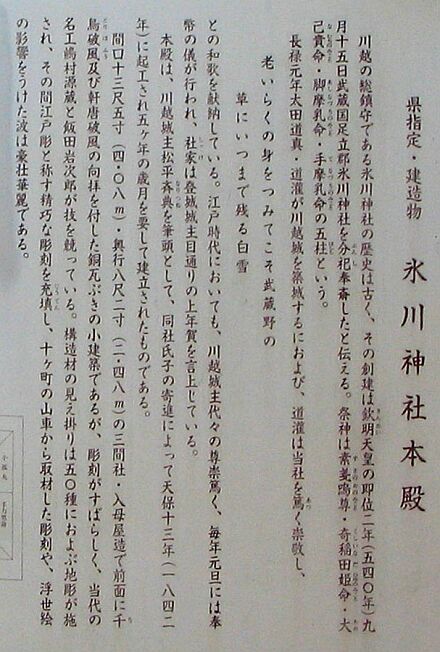 県指定・建造物　氷川神社本殿
川越の総鎮守である氷川神社の歴史は古く、その創建は欽明天皇の即位二年（五四〇年）九
月十五日武蔵国足立郡氷川神社を分祀奉斎したと伝える。祭神は素戔嗚尊・奇稲田姫命・大
己貴命・脚摩乳命・手摩乳命の五柱という。
長禄元年太田道真・道灌が川越城を築城するにおよび、道灌は当社を篤く崇敬し、
老いらくの身をつみてこそ武蔵野の
草にいつまで残る白雪
との和歌を献納している。江戸時代においても、川越城主代々の尊崇篤く、毎年元旦には奉
幣の儀が行われ、社家は登城城主目通りの上年賀を言上している。
本殿は、川越城主松平斉典を筆頭として、同社氏子の寄進によって天保十三年（一八四二
年）に起工され五ヶ年の歳月を要して建立されたものである。
間口十三尺五寸（四・〇八ｍ）・奥行八尺二寸（二・四八ｍ）の三間社・入母屋造で前面に千
鳥破風及び軒唐破風の向拝を付した銅瓦ぶきの小建築であるが、彫刻がすばらしく、当代の
名工嶋村源蔵と飯田岩次郎が技を競っている。構造材の見え掛りは五〇種におよぶ地彫が施
され、その間江戸彫と称す精巧な彫刻を充填し、十ヶ町の山車から取材した彫刻や、浮世絵
の影響をうけた波は豪壮華麗である。